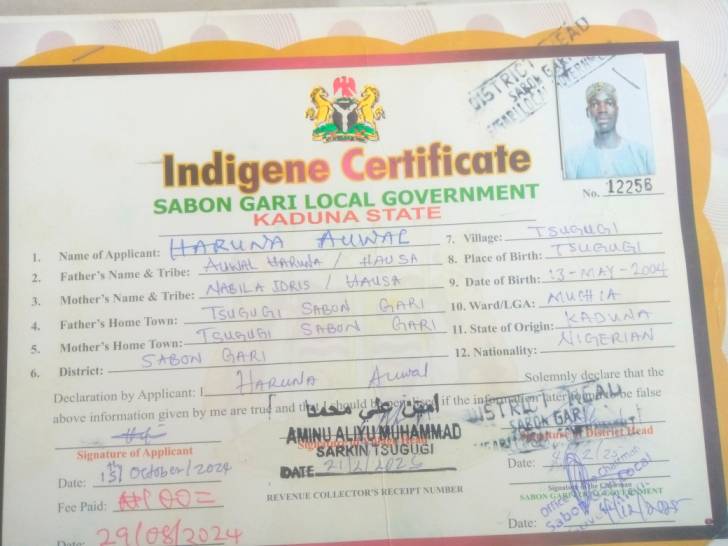 DISTRICT HEAD
SABON GARI
Indigene Certificate
SABON GARI LOCAL GOVERNMENT
KADUNA STATE
No. 12256
1. Name of Applicant: HARUNA AUWAL
2. Father's Name & Tribe: AUWAL HARUNA / HAUSA
3. Mother's Name & Tribe: NABILA IDRIS / HAUSA
4. Father's Home Town: TSUGUGI SABON GARI
5. Mother's Home Town: TSUGUGI SABON GARI
6. District: SABON GARI
7. Village: TSUGUGI
8. Place of Birth: TSUGUGI
9. Date of Birth: 13-MAY-2004
10. Ward/LGA: MUCHIA
11. State of Origin: KADUNA
12. Nationality: NIGERIAN
Declaration by Applicant: I Haruna Auwal Solemnly declare that the
above information given by me are true and that I should be if the information later be false
امين علي محمد
AMINU ALIYU MUHAMMAD
SARKIN TSUGUGI
DATE 21/2/2025
DISTRICT HEAD
SABON GARI
Signature of Applicant
Signature of District Head
Date: 1st October/2024
Date:
Fee Paid:
REVENUE COLLECTOR'S RECEIPT NUMBER
Signature of the Chairman
SABON GARI LOCAL GOVERNMENT
Date: 29/08/2024
Date: